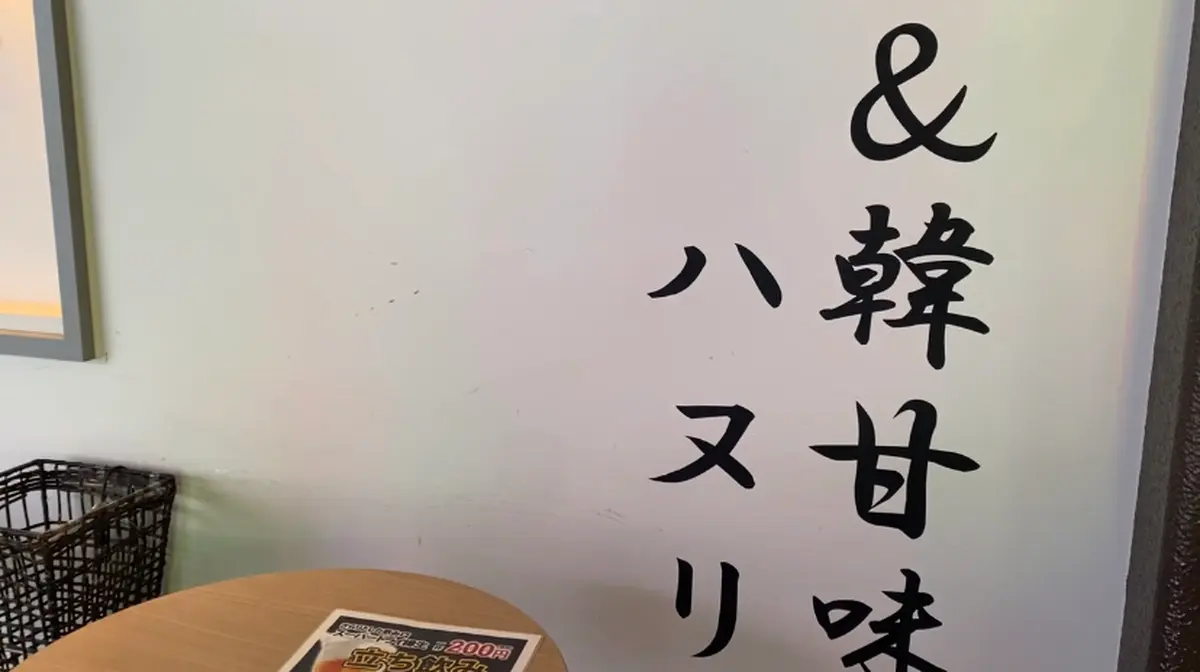 &韓甘味
ハヌリ
200円
立ち飲み